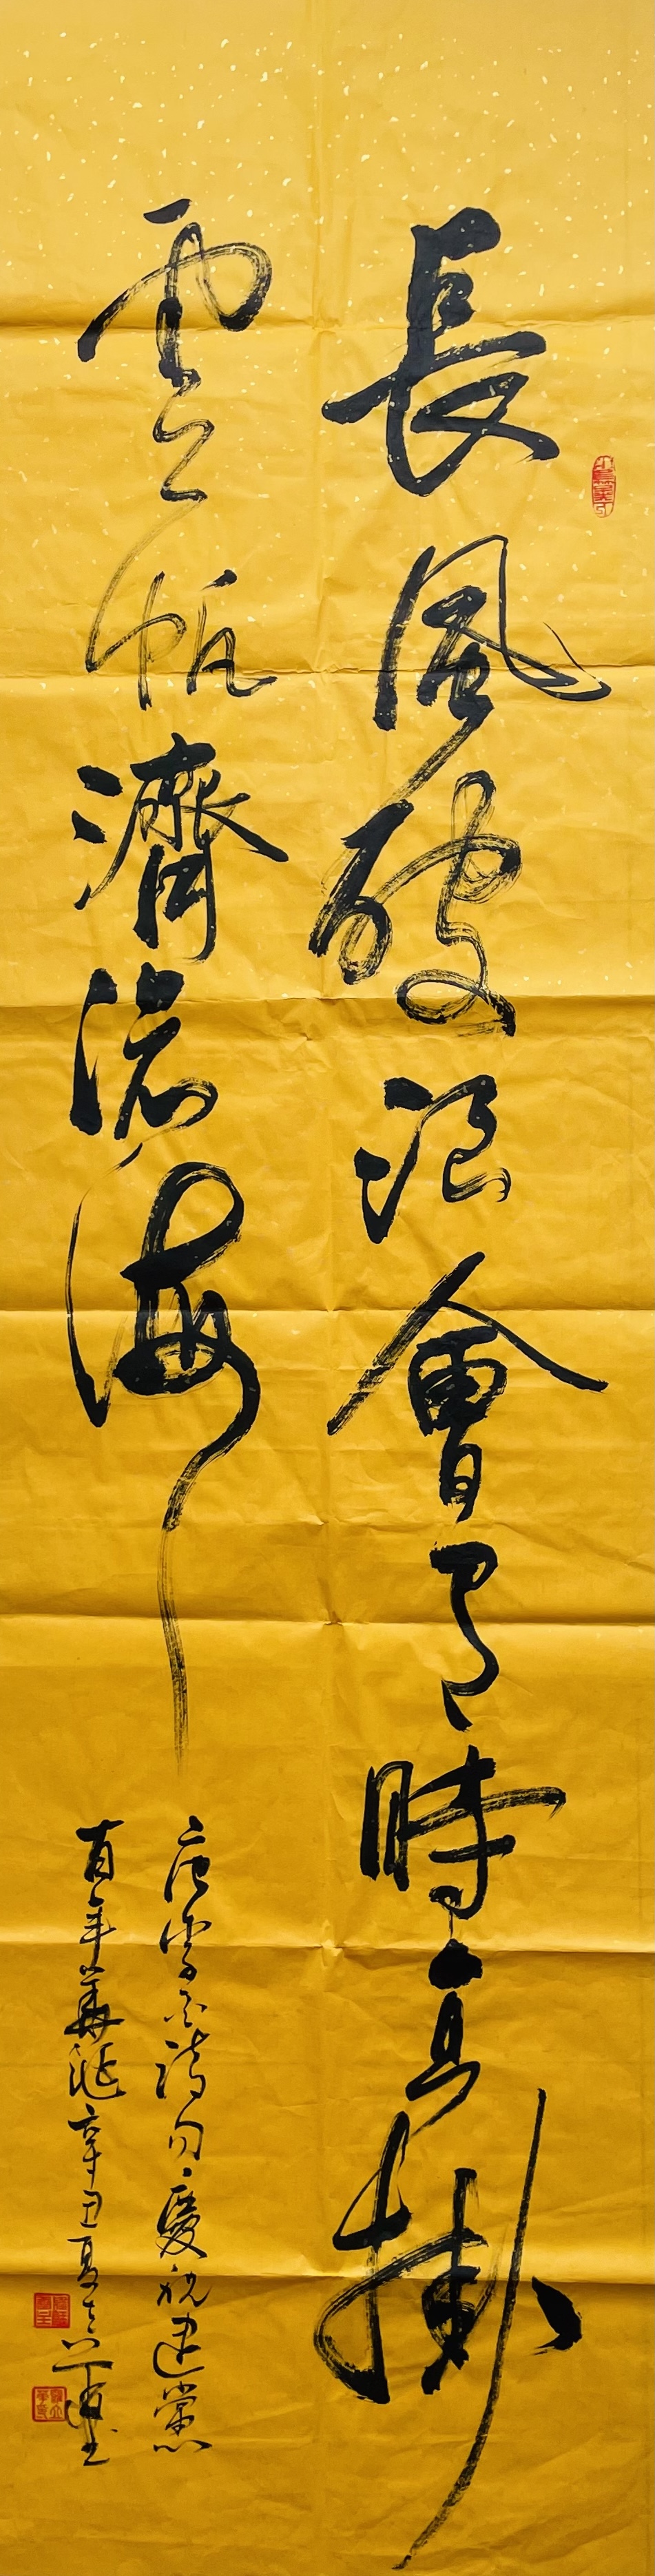 長風破浪會有時直掛
雲帆濟滄海
唐李白詩句慶祝建黨
百年華誕辛丑夏